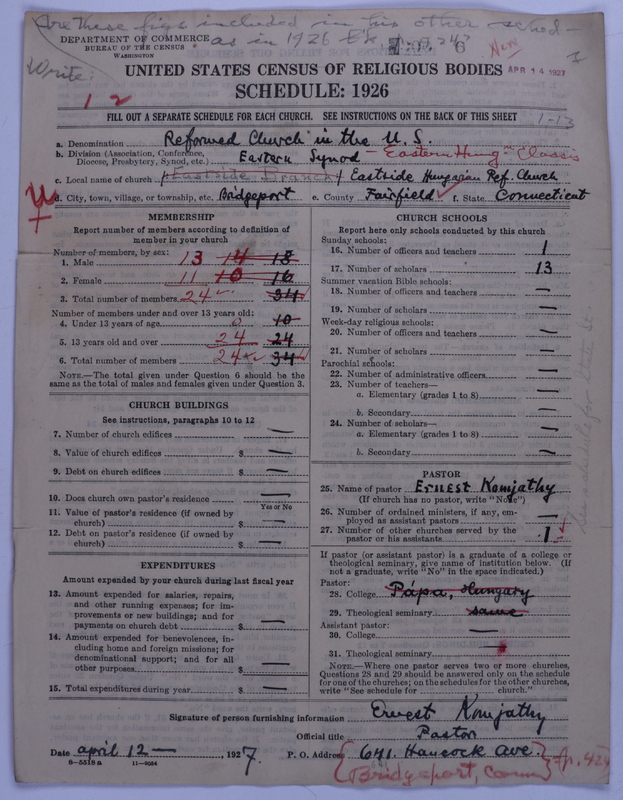 Are these five included in his other sched-
DEPARTMENT OF COMMERCE
BUREAU OF THE CENSUS
WASHINGTON
as in 1926
6
New
Write:
APR 14 1927
1 2
UNITED STATES CENSUS OF RELIGIOUS BODIES
SCHEDULE: 1926
FILL OUT A SEPARATE SCHEDULE FOR EACH CHURCH. SEE INSTRUCTIONS ON THE BACK OF THIS SHEET
1-13
a. Denomination Reformed Church in the U. S.
b. Division (Association, Conference, Diocese, Presbytery, Synod, etc.) Eastern Synod - Eastern Hung. Classis
c. Local name of church Eastside Branch Eastside Hungarian Ref. Church
d. City, town, village, or township, etc. Bridgeport e. County Fairfield f. State Connecticut
MEMBERSHIP
Report number of members according to definition of member in your church
Number of members, by sex:
1. Male 13 14 18
2. Female 11 10 16
3. Total number of members 24 34
Number of members under and over 13 years old:
4. Under 13 years of age 0 10
5. 13 years old and over 24 24
6. Total number of members 24 34
NOTE.—The total given under Question 6 should be the same as the total of males and females given under Question 3.
CHURCH BUILDINGS
See instructions, paragraphs 10 to 12
7. Number of church edifices —
8. Value of church edifices $ —
9. Debt on church edifices $ —
10. Does church own pastor's residence —
Yes or No
11. Value of pastor's residence (if owned by church) $ —
12. Debt on pastor's residence (if owned by church) $ —
EXPENDITURES
Amount expended by your church during last fiscal year
13. Amount expended for salaries, repairs, and other running expenses; for improvements or new buildings; and for payments on church debt $ —
14. Amount expended for benevolences, including home and foreign missions; for denominational support; and for all other purposes $ —
15. Total expenditures during year $ —
CHURCH SCHOOLS
Report here only schools conducted by this church
Sunday schools:
16. Number of officers and teachers 1
17. Number of scholars 13
Summer vacation Bible schools:
18. Number of officers and teachers —
19. Number of scholars —
Week-day religious schools:
20. Number of officers and teachers —
21. Number of scholars —
Parochial schools:
22. Number of administrative officers —
23. Number of teachers—
a. Elementary (grades 1 to 8) —
b. Secondary —
24. Number of scholars—
a. Elementary (grades 1 to 8) —
b. Secondary —
PASTOR
25. Name of pastor Ernest Komjathy
(If church has no pastor, write "None")
26. Number of ordained ministers, if any, employed as assistant pastors —
27. Number of other churches served by the pastor or his assistants 1
If pastor (or assistant pastor) is a graduate of a college or theological seminary, give name of institution below. (If not a graduate, write "No" in the space indicated.)
Pastor:
28. College Pápa, Hungary
29. Theological seminary same
Assistant pastor:
30. College —
31. Theological seminary —
NOTE.—Where one pastor serves two or more churches, Questions 28 and 29 should be answered only on the schedule for one of the churches; on the schedules for the other churches, write "See schedule for church."
Signature of person furnishing information Ernest Komjathy
Official title Pastor
Date april 12 —, 1927. P. O. Address 641. Hancock Ave.
8-5518a 11-9064
(Bridgeport, Conn)